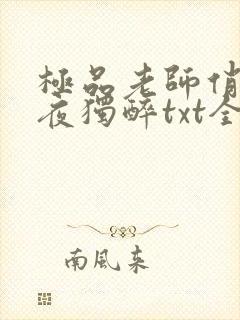 極品老師俏
夜獨醉txt全
南風来